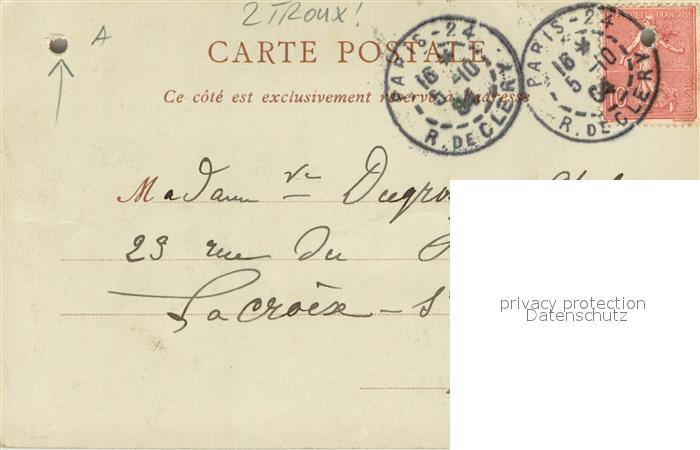 2 TROUX!
A
CARTE POSTALE
Ce côté est exclusivement réservé à l'adresse
PARIS - 24
16
5 -10
R. DE CLERY
PARIS - 24
16
5 -10
R. DE CLERY
FRANÇAISE
10
Madame Vve
23 rue du
Lacroix - St
privacy protection
Datenschutz